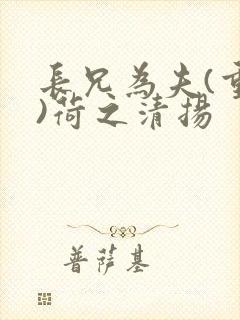 長兄為夫(重
)荷之清揚
普薩基